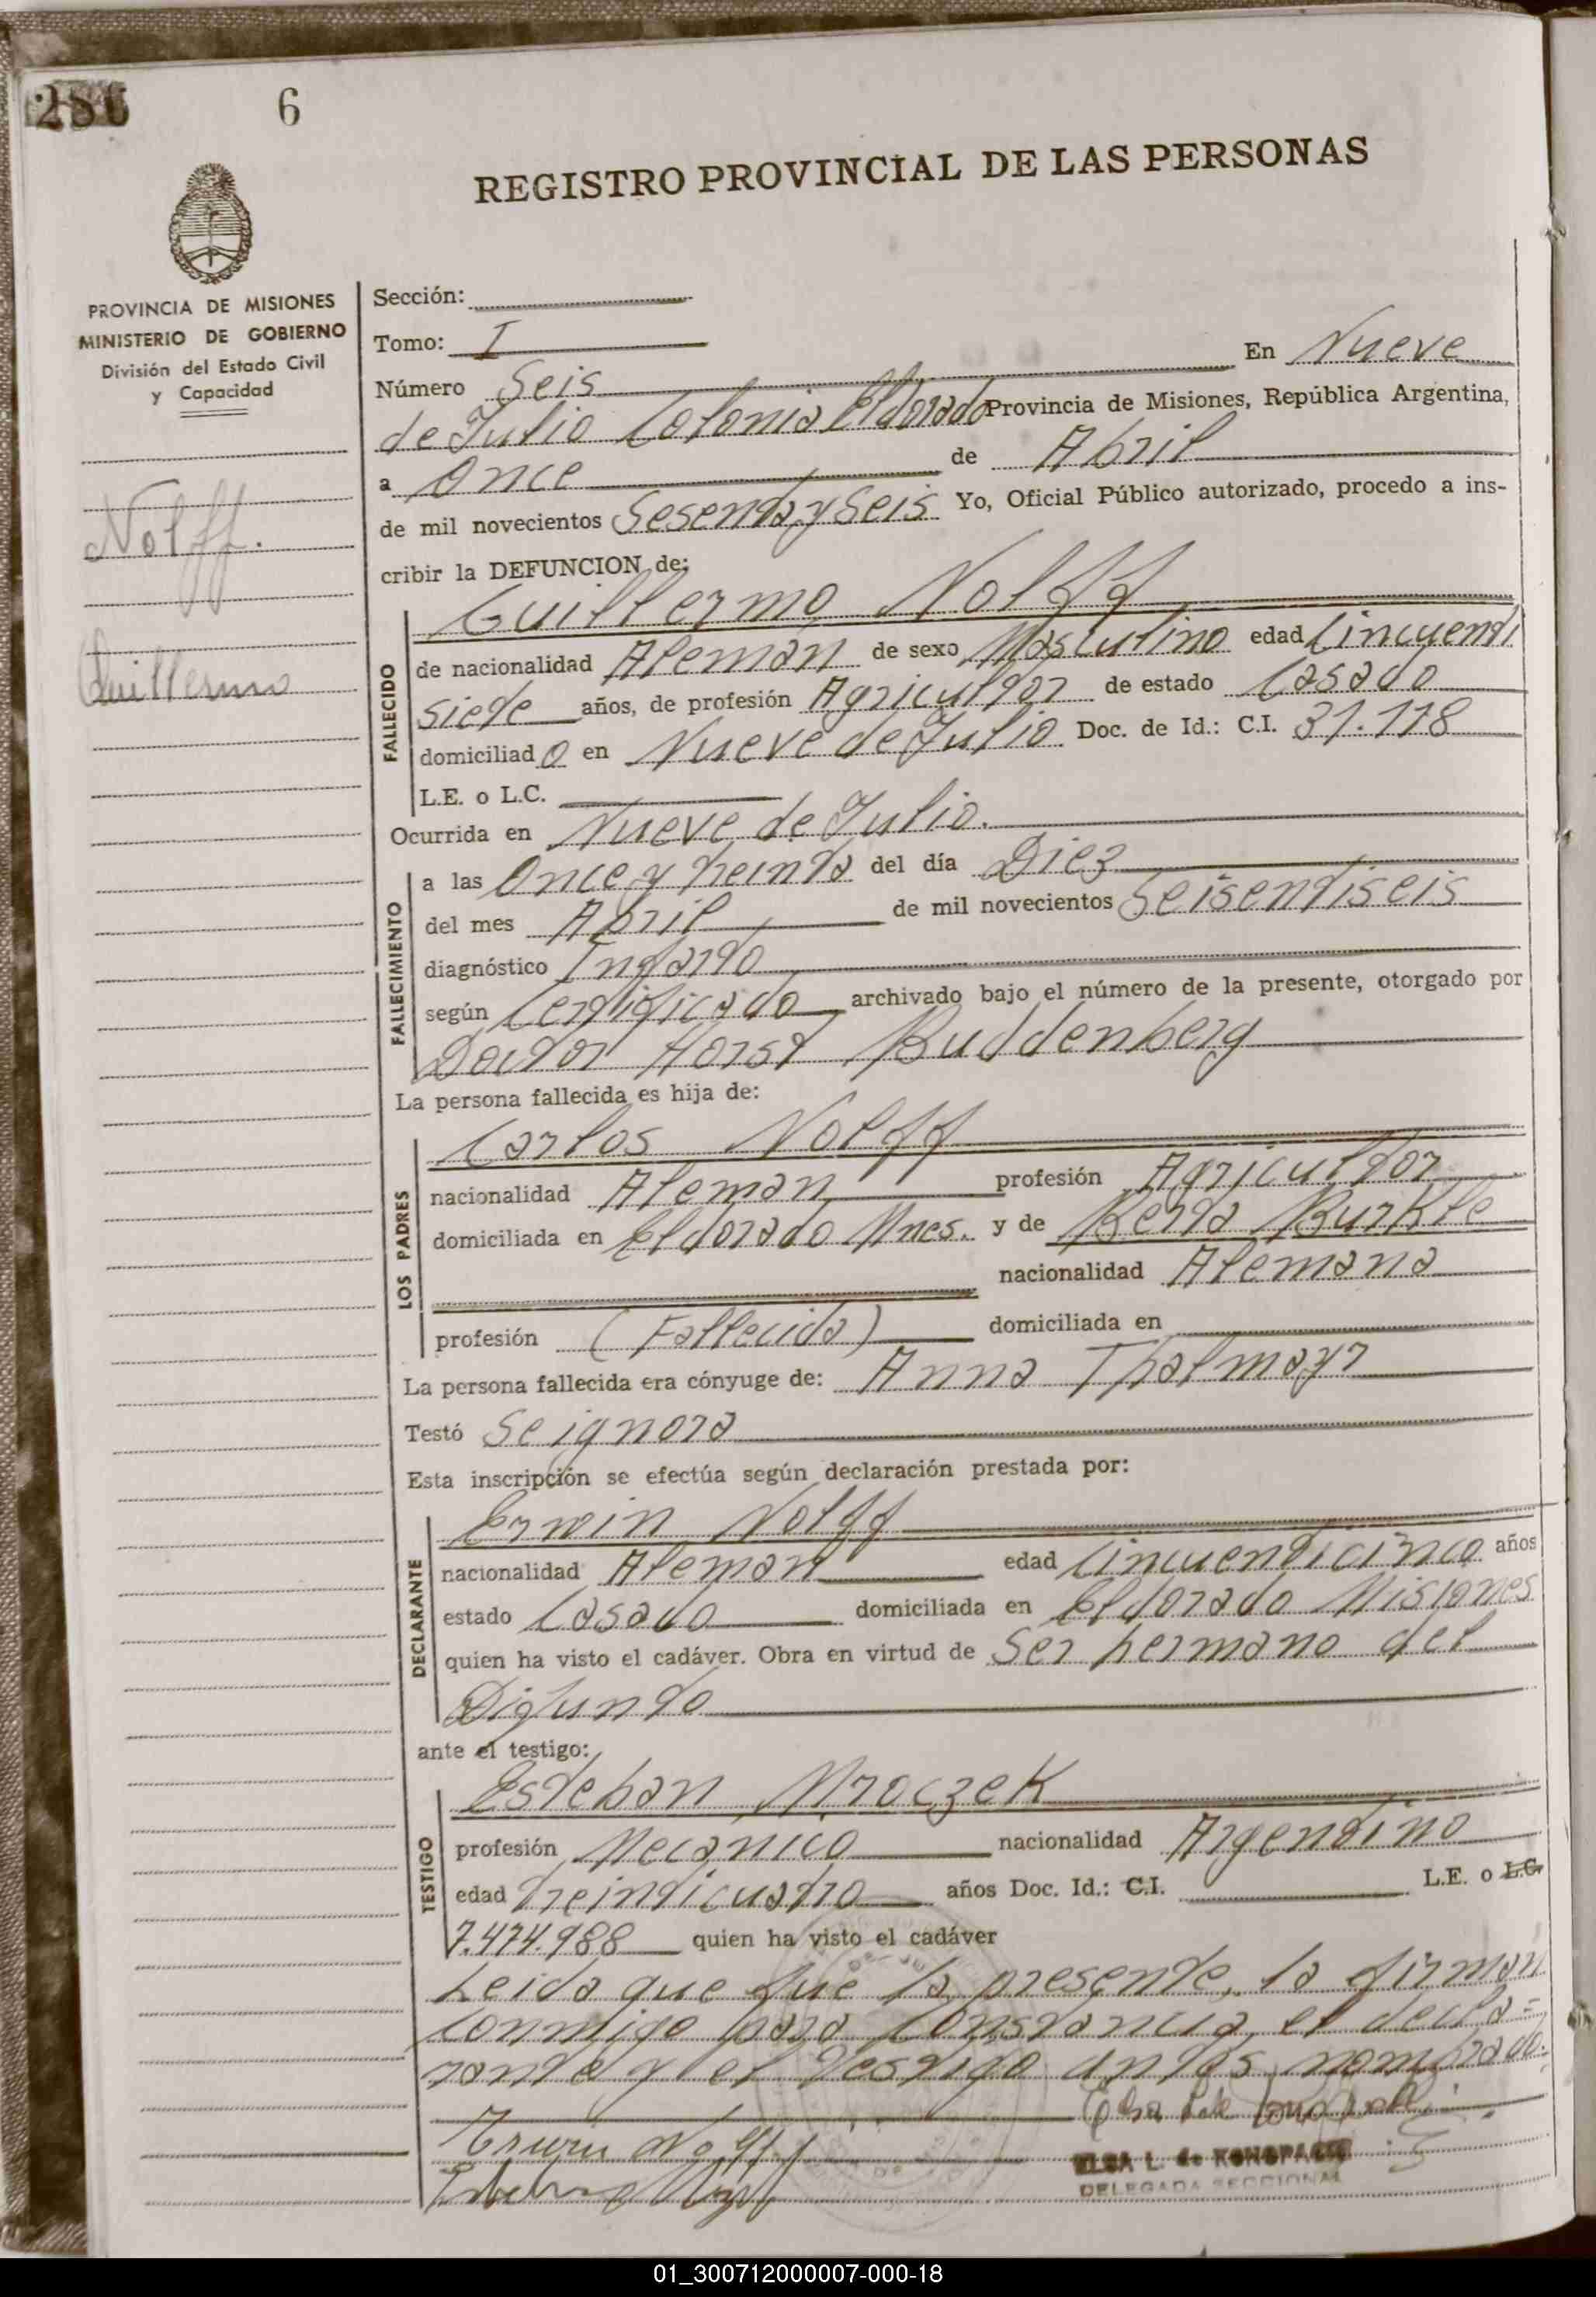 286 6
REGISTRO PROVINCIAL DE LAS PERSONAS
PROVINCIA DE MISIONES
MINISTERIO DE GOBIERNO
División del Estado Civil
y Capacidad
Nolff.
Guillermo
Sección:
Tomo: I
Número Seis En Nueve
de Julio Colonia Eldorado Provincia de Misiones, República Argentina,
a Once de Abril
de mil novecientos Sesenta y Seis Yo, Oficial Público autorizado, procedo a ins-
cribir la DEFUNCION de:
FALLECIDO
Guillermo Nolff
de nacionalidad Alemán de sexo Masculino edad Cincuenti
siete años, de profesión Agricultor de estado Casado
domiciliado en Nueve de Julio Doc. de Id.: C.I. 31.118
L.E. o L.C.
Ocurrida en Nueve de Julio.
FALLECIMIENTO
a las Once y treinta del día Diez
del mes Abril de mil novecientos Seisentiseis
diagnóstico Infarto
según Certificado archivado bajo el número de la presente, otorgado por
Doctor Horst Buddenberg
La persona fallecida es hija de:
LOS PADRES
Carlos Nolff
nacionalidad Aleman profesión Agricultor
domiciliada en Eldorado Mnes. y de Berta Burkle
nacionalidad Alemana
profesión (Fallecida) domiciliada en
La persona fallecida era cónyuge de: Anna Thalmayr
Testó Se ignora
Esta inscripción se efectúa según declaración prestada por:
DECLARANTE
Erwin Nolff
nacionalidad Aleman edad Cincuenticinco años
estado Casado domiciliada en Eldorado Misiones
quien ha visto el cadáver. Obra en virtud de Ser hermano del
Difunto
ante el testigo:
TESTIGO
Esteban Mroczek
profesión Mecánico nacionalidad Argentino
edad Treinticuatro años Doc. Id.: C.I. L.E. o L.C.
7.474.988 quien ha visto el cadáver
Leida que fue la presente, la firman
conmigo para constancia, el decla=
rante y el testigo antes nombrado.
Erwin Nolff
ELSA L. de KONOPACKI
DELEGADA SECCIONAL
01_300712000007-000-18